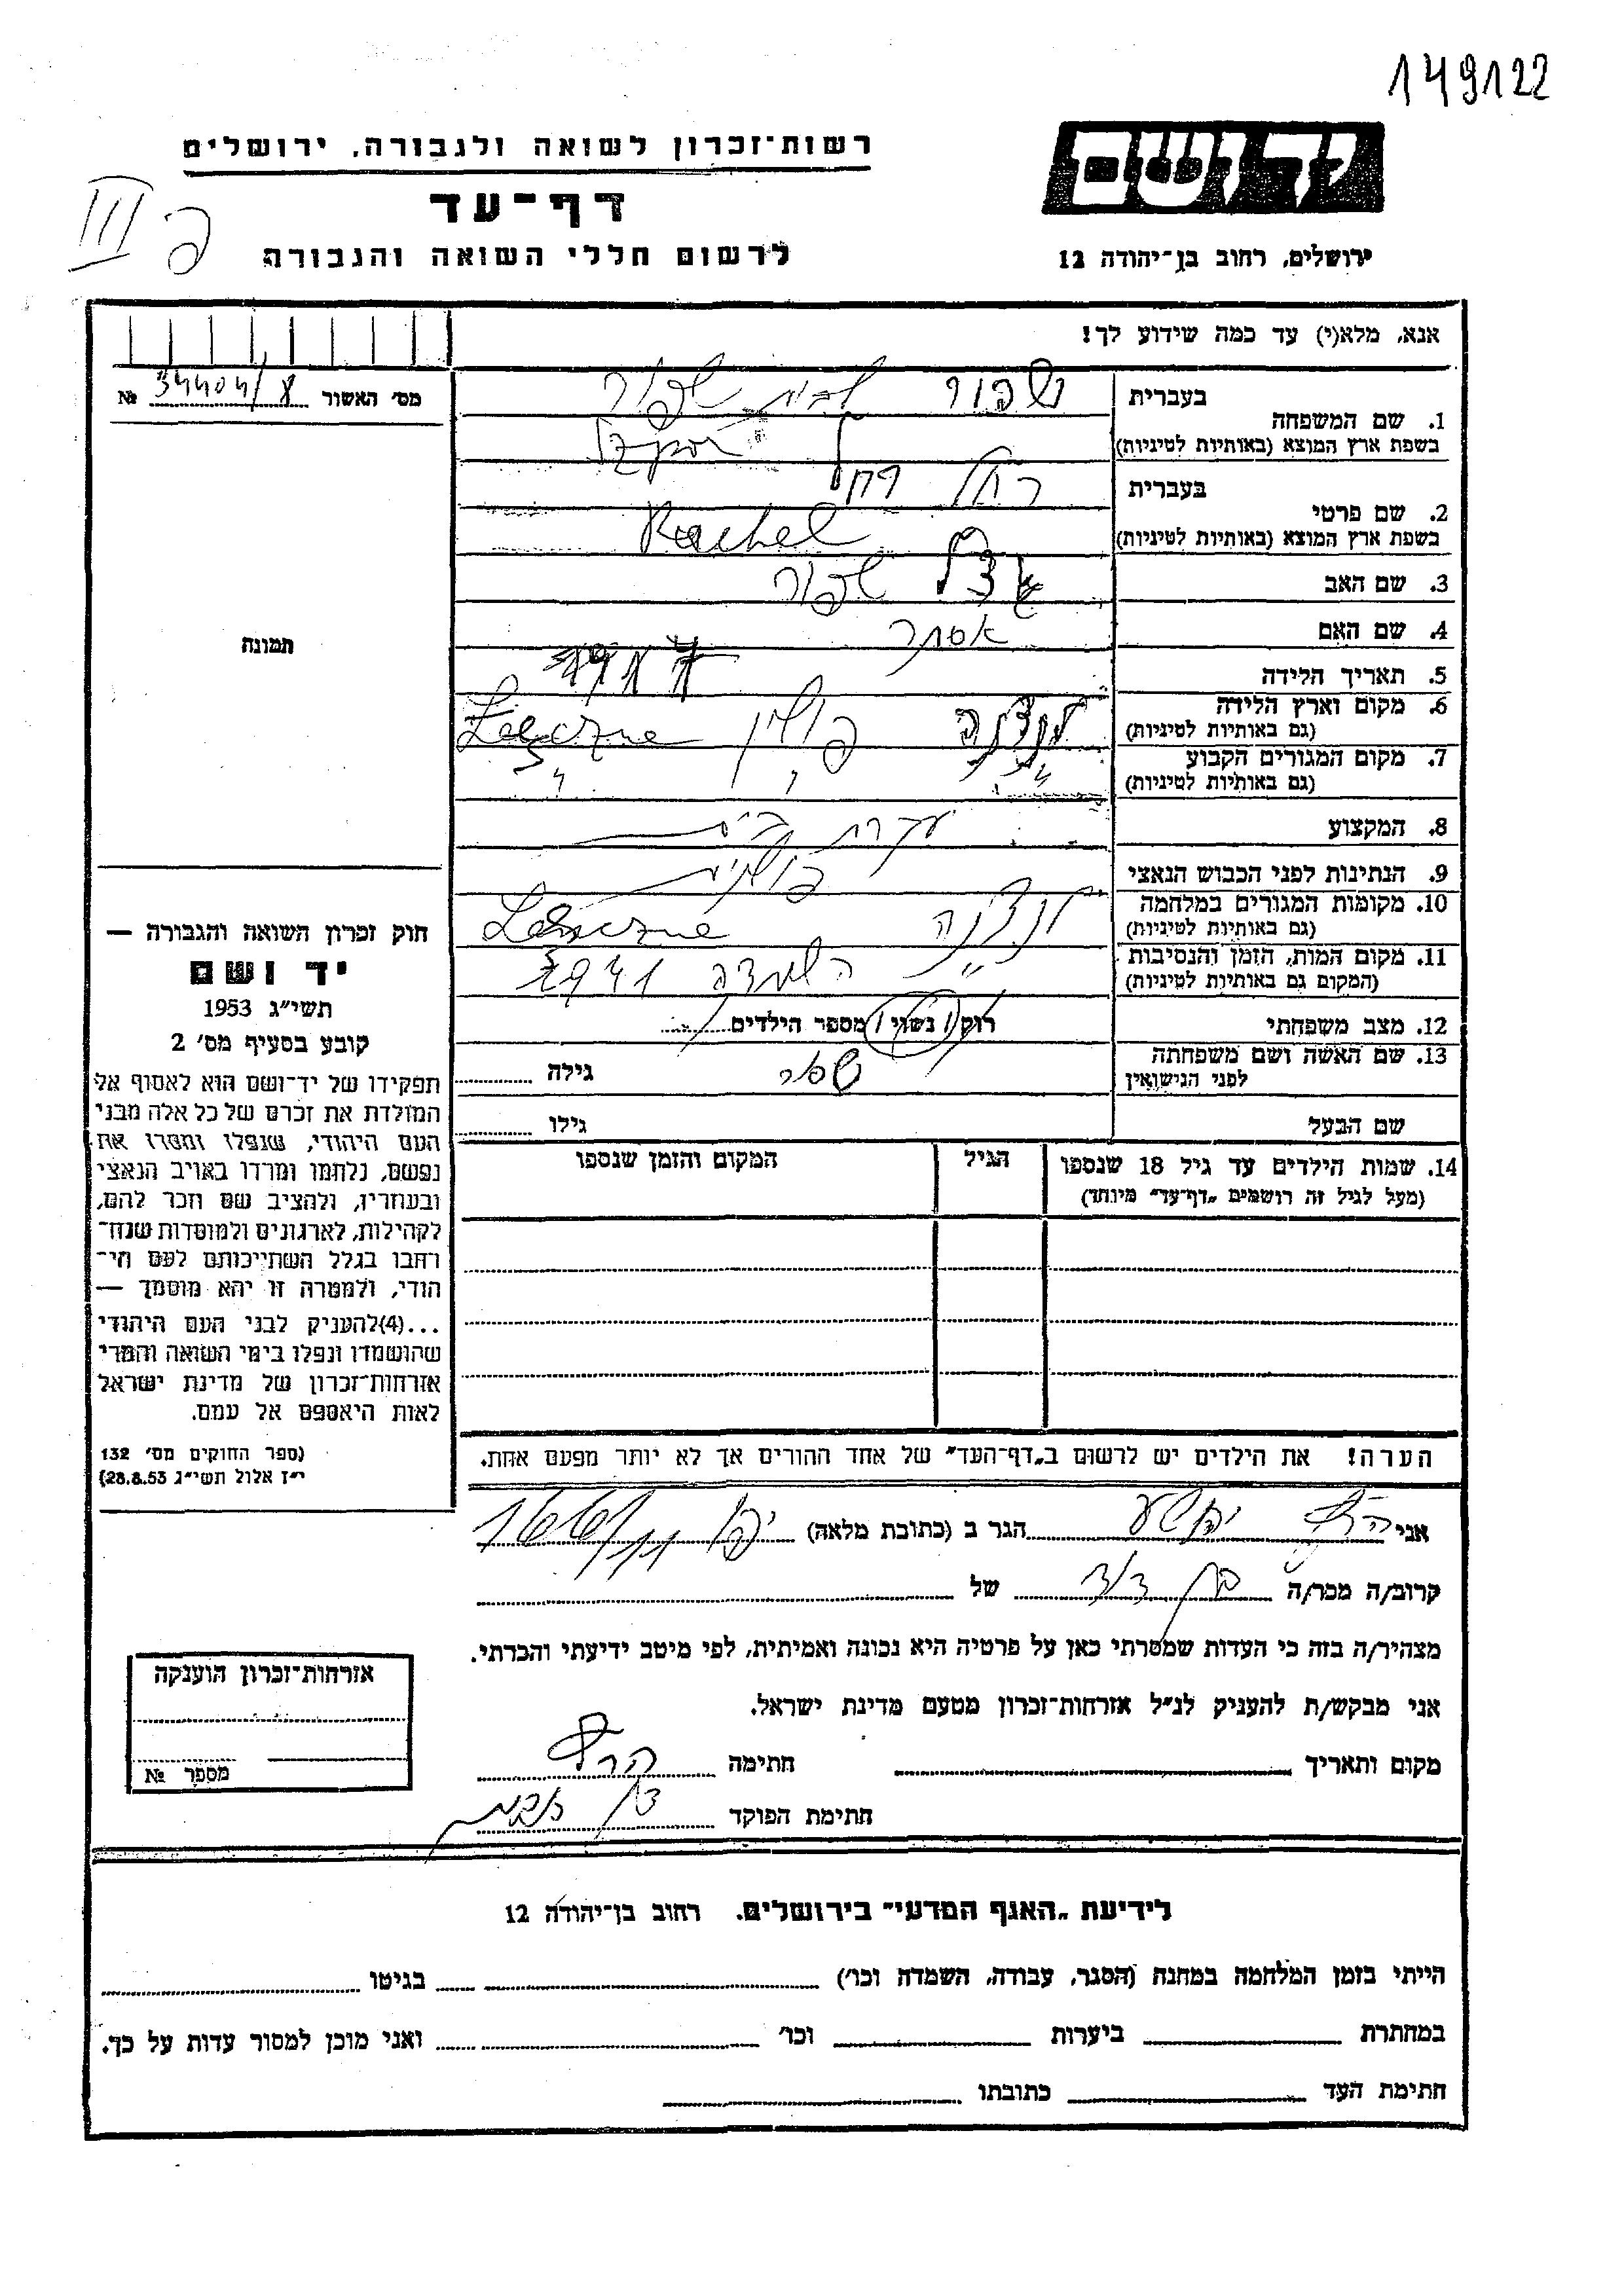 149122
רשות־זכרון לשואה ולגבורה, ירושלים
יד ושם
דף־עד
לרשום חללי השואה והגבורה
ירושלים, רחוב בן־יהודה 12
III
אנא, מלא(י) עד כמה שידוע לך!
מס׳ האשור №
בעברית
1. שם המשפחה
בשפת ארץ המוצא (באותיות לטיניות)
בעברית רחל
2. שם פרטי
בשפת ארץ המוצא (באותיות לטיניות) Rachel
3. שם האב
4. שם האם אסתר
5. תאריך הלידה 1917
6. מקום וארץ הלידה פולין
(גם באותיות לטיניות)
7. מקום המגורים הקבוע
(גם באותיות לטיניות)
8. המקצוע עקרת בית
9. הנתינות לפני הכבוש הנאצי פולנית
10. מקומות המגורים במלחמה
(גם באותיות לטיניות)
11. מקום המות, הזמן והנסיבות השמדה 1941
(המקום גם באותיות לטיניות)
12. מצב משפחתי רוק / נשוי / מספר הילדים
13. שם האשה ושם משפחתה גילה
לפני הנישואין
שם הבעל גילו
14. שמות הילדים עד גיל 18 שנספו הגיל המקום והזמן שנספו
(מעל לגיל זה רושמים „דף־עד״ מיוחד)
תמונה
חוק זכרון השואה והגבורה —
יד ושם
תשי״ג 1953
קובע בסעיף מס׳ 2
תפקידו של יד־ושם הוא לאסוף אל
המולדת את זכרם של כל אלה מבני
העם היהודי, שנפלו ומסרו את
נפשם, נלחמו ומרדו באויב הנאצי
ובעוזריו, ולהציב שם וזכר להם,
לקהילות, לארגונים ולמוסדות שנח־
רבו בגלל השתייכותם לעם הי־
הודי, ולמטרה זו יהא מוסמך —
...(4) להעניק לבני העם היהודי
שהושמדו ונפלו בימי השואה והמרי
אזרחות־זכרון של מדינת ישראל
לאות היאספם אל עמם.
(ספר החוקים מס׳ 132
י״ז אלול תשי״ג 28.8.53)
הערה! את הילדים יש לרשום ב„דף־העד״ של אחד ההורים אך לא יותר מפעם אחת.
אני הגר ב (כתובת מלאה) יפו
קרוב/ה מכר/ה בן דוד של
מצהיר/ה בזה כי העדות שמסרתי כאן על פרטיה היא נכונה ואמיתית, לפי מיטב ידיעתי והכרתי.
אני מבקש/ת להעניק לנ״ל אזרחות־זכרון מטעם מדינת ישראל.
מקום ותאריך חתימה
חתימת הפוקד
אזרחות־זכרון הוענקה
מספר №
לידיעת „האגף המדעי״ בירושלים. רחוב בן־יהודה 12
הייתי בזמן המלחמה במחנה (הסגר, עבודה, השמדה וכו׳) בגיטו
במחתרת ביערות וכו׳ ואני מוכן למסור עדות על כך.
חתימת העד כתובתו